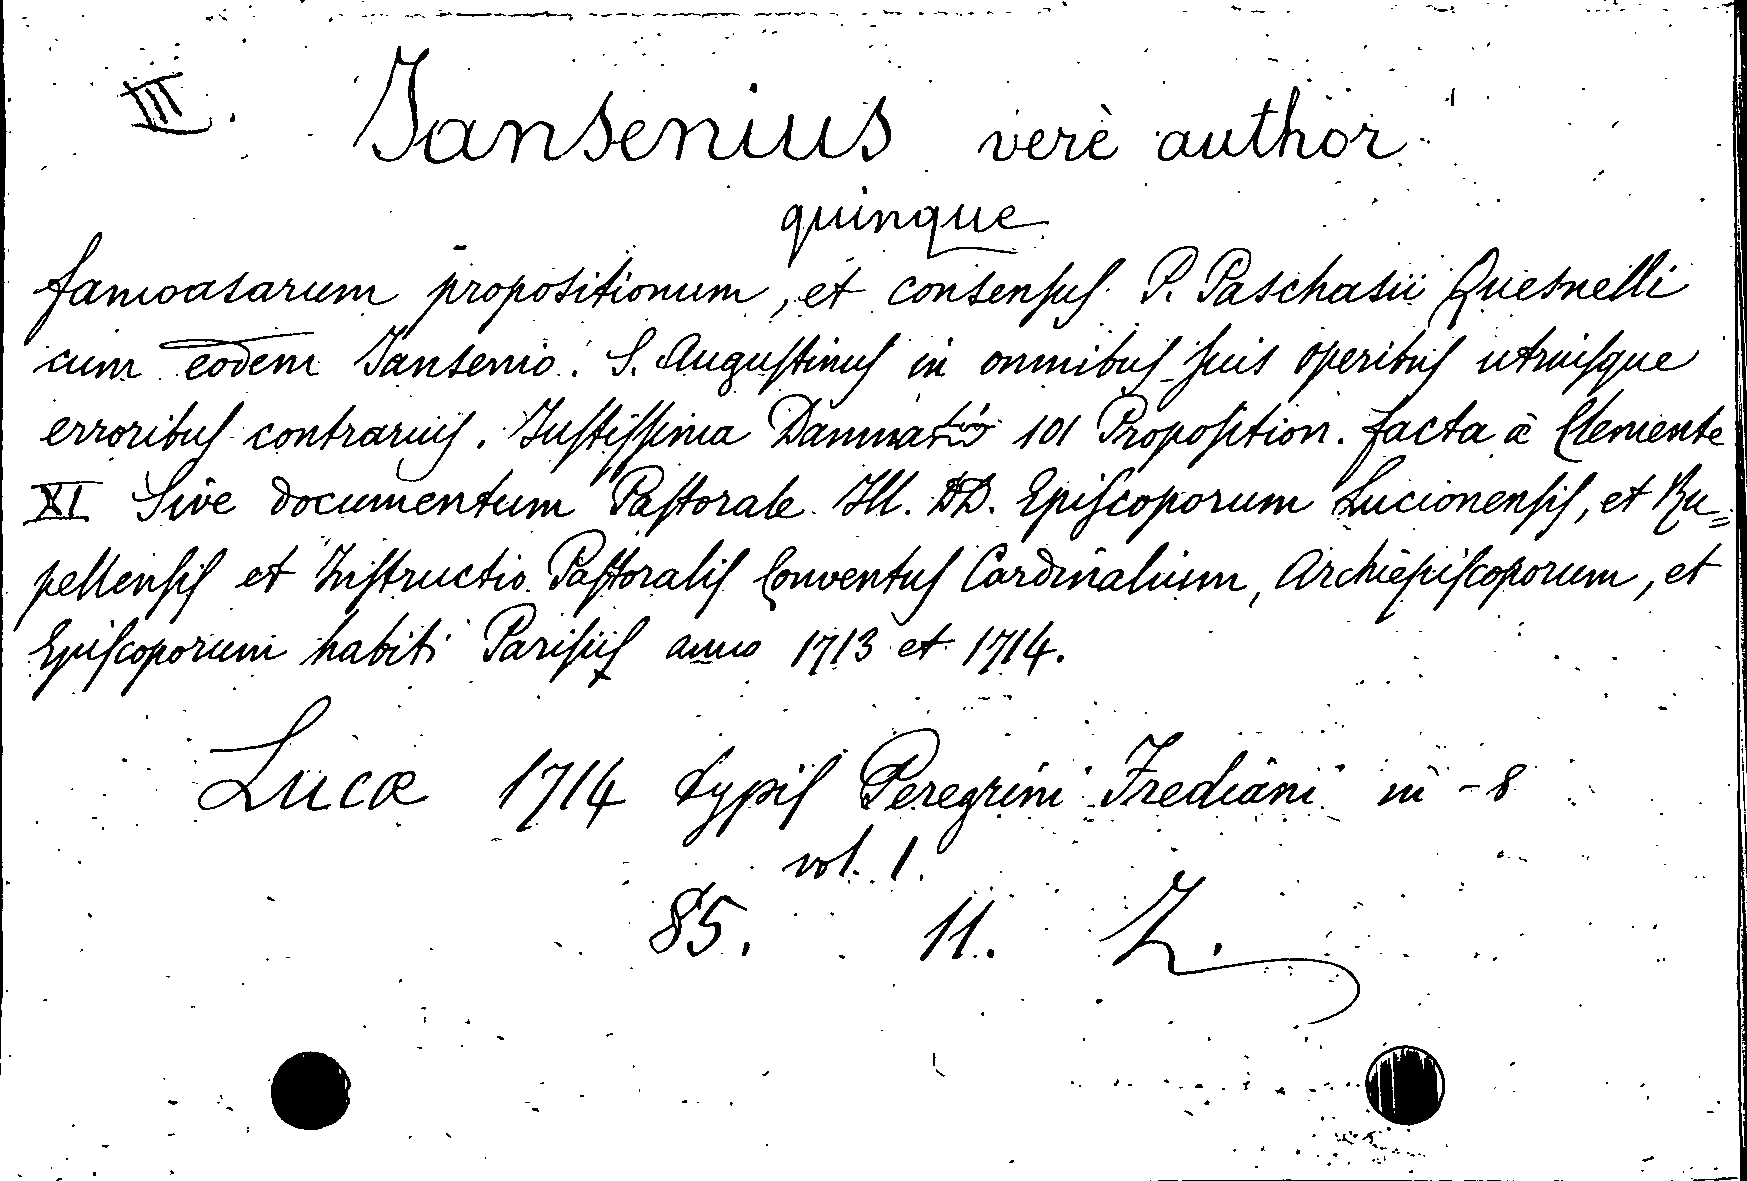 III. Jansenius verè author
quinque
famoasarum propositionum, et consensus P. Paschasii Quesnelli
cum eodem Jansenio. S. Augustinus in omnibus suis operibus utriusque
erroribus contrarius. Justissima Damnatio 101 Proposition. facta à Clemente
XI Sive documentum Pastorale Ill. DD. Episcoporum Lucionensis, et Ru=
pellensis et Instructio Pastoralis Conventus Cardinalium, Archiepiscoporum, et
Episcoporum habiti Parisiis anno 1713 et 1714.
Lucæ 1714 typis Peregrini Frediani in - 8
vol. 1.
85. 11. Z.